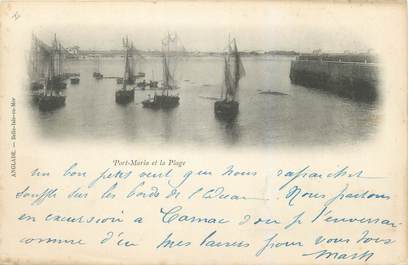 ANGLADE. — Belle-Isle-en-Mer
Port-Maria et la Plage
Un bon petit vent qui nous rafraichit
souffle sur les bords de l'Océan. Nous partons
en excursion à Carnac d'où je t'enverrai
comme d'ici mes baisers pour vous tous